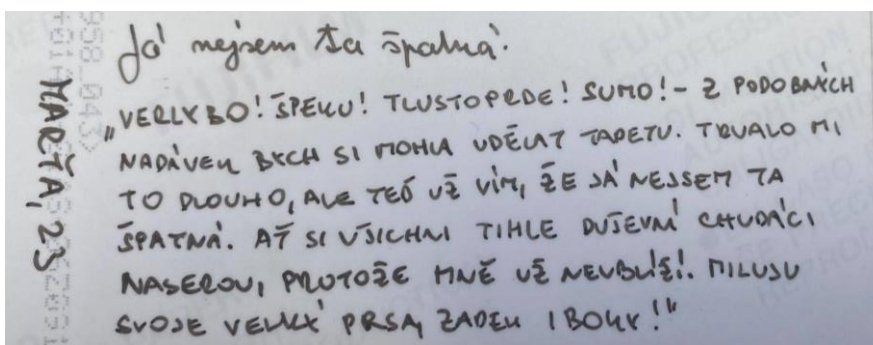 Já nejsem ta špatná.
„VELRYBO! ŠPEKU! TLUSTOPRDE! SUMO! – Z PODOBNÝCH
NADÁVEK BYCH SI MOHLA UDĚLAT TAPETU. TRVALO MI
TO DLOUHO, ALE TEĎ UŽ VÍM, ŽE JÁ NEJSEM TA
ŠPATNÁ. AŤ SI VŠICHNI TIHLE DUŠEVNÍ CHUDÁCI
NASEROU, PROTOŽE MNĚ UŽ NEUBLÍŽÍ. MILUJU
SVOJE VELKÝ PRSA, ZADEK I BOKY!"
MARŤA, 23